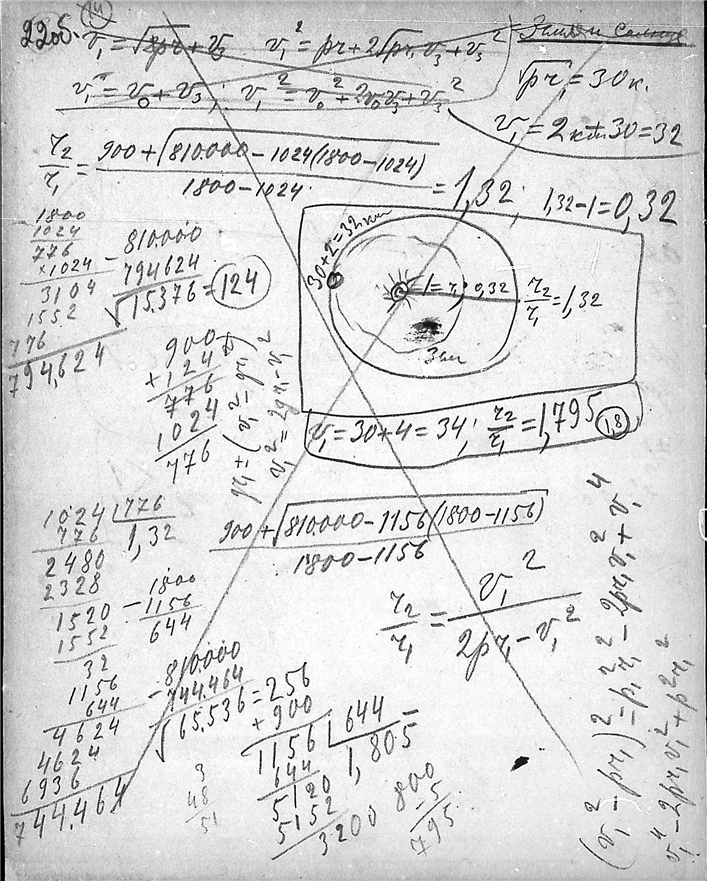 14
22об.
v₁ = √pr₁ + v₃   v₁² = pr₁ + 2√pr₁ v₃ + v₃²
v₁ = v₀ + v₃; v₁² = v₀² + 2v₀v₃ + v₃²
√pr₁ = 30 к.
v₁ = 2 км + 30 = 32
r₂/r₁ = (900 + √(810.000 − 1024(1800 − 1024)))/(1800 − 1024) = 1,32; 1,32 − 1 = 0,32
1800
1024
776
×1024
3104
1552
776
794,624
− 810.000
794624
√15.376 = 124
900
+124
776
1024
776
30 + 2 = 32 км
1 = r₁
0,32
r₂/r₁ = 1,32
v₁ = 30 + 4 = 34; r₂/r₁ = 1,795
1,8
v₁² = 2gr₁ − v₁²
1024 | 776
776 | 1,32
2480
2328
1520
1552
32
− 1800
1156
644
(900 + √(810.000 − 1156(1800 − 1156)))/(1800 − 1156)
r₂/r₁ = v₁²/(2pr₁ − v₁²)
1156
644
4624
4624
6936
744.464
− 810.000
744.464
√65.536 = 256
+ 900
1156 | 644 =
644 | 1,805
5120
5152
3200
3
48
51
800
− 5
795
(v₁² − pr₁)² = p²r₁² − 2pr₁v₁² + v₁⁴
v₁⁴ − 2pr₁v₁² + p²r₁²